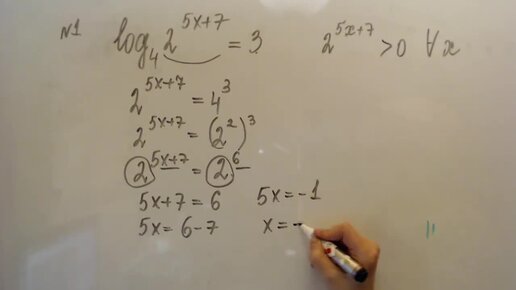 №1 log₄ 2^(5x+7) = 3 2^(5x+7) > 0 ∀x
2^(5x+7) = 4³
2^(5x+7) = (2²)³
2^(5x+7) = 2⁶
5x+7 = 6 5x = -1
5x = 6-7 x = -